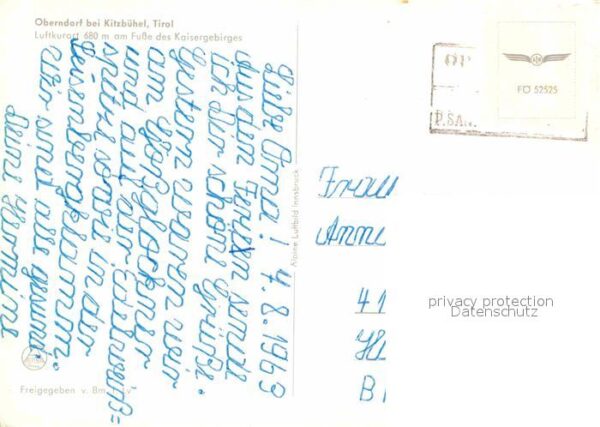 Oberndorf bei Kitzbühel, Tirol
Luftkurort 680 m am Fuße des Kaisergebirges
Liebe Oma! 4.8.1969
Aus den Ferien sende
ich dir schöne Grüße.
Gestern waren wir
am Großglockner
und auf der Edelweiß=
spitze sowie in der
Leisenbergklamm.
Wir sind alle gesund.
Deine Hermine
Alpine Luftbild Innsbruck
Freigegeben v. Bm.
FO 52525
P.SA
Frau
Anne
41
privacy protection
Datenschutz